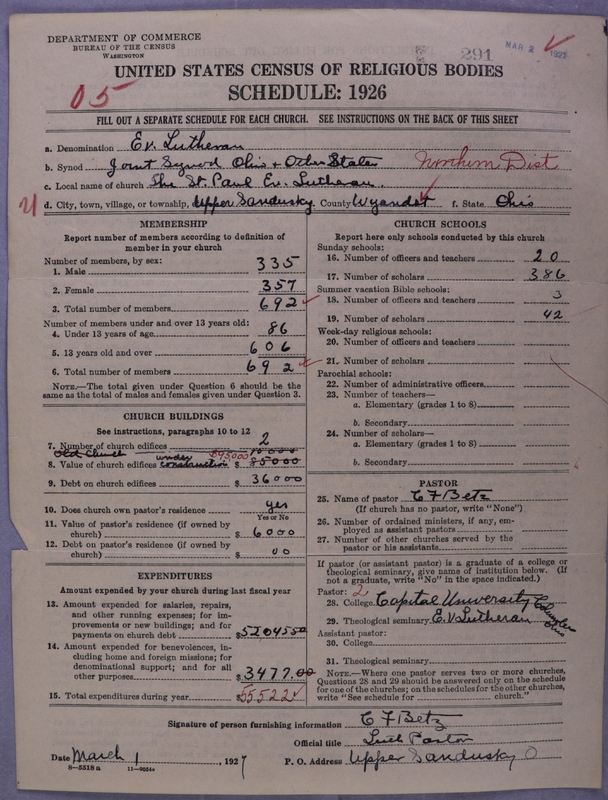 DEPARTMENT OF COMMERCE
BUREAU OF THE CENSUS
WASHINGTON
291
MAR 2 1927
UNITED STATES CENSUS OF RELIGIOUS BODIES
05
SCHEDULE: 1926
FILL OUT A SEPARATE SCHEDULE FOR EACH CHURCH. SEE INSTRUCTIONS ON THE BACK OF THIS SHEET
a. Denomination Ev. Lutheran
b. Synod Joint Synod Ohio & Other States Northern Dist
c. Local name of church The St. Paul Ev. Lutheran.
d. City, town, village, or township, Upper Sandusky County Wyandot f. State Ohio
MEMBERSHIP
Report number of members according to definition of
member in your church
Number of members, by sex:
1. Male 335
2. Female 357
3. Total number of members 692
Number of members under and over 13 years old:
4. Under 13 years of age 86
5. 13 years old and over 606
6. Total number of members 692
NOTE.—The total given under Question 6 should be
same as the total of males and females given under Question 3.
CHURCH BUILDINGS
See instructions, paragraphs 10 to 12
7. Number of church edifices 2
Old Church under $95000 10000
8. Value of church edifices construction $ 85000
9. Debt on church edifices $ 36000
10. Does church own pastor's residence yes
Yes or No
11. Value of pastor's residence (if owned by
church) $ 6000
12. Debt on pastor's residence (if owned by
church) $ 00
EXPENDITURES
Amount expended by your church during last fiscal year
13. Amount expended for salaries, repairs,
and other running expenses; for im-
provements or new buildings; and for
payments on church debt $52045.50
14. Amount expended for benevolences,
including home and foreign missions; for
denominational support; and for all
other purposes $3477.00
15. Total expenditures during year $55522
CHURCH SCHOOLS
Report here only schools conducted by this church
Sunday schools:
16. Number of officers and teachers 20
17. Number of scholars 386
Summer vacation Bible schools:
18. Number of officers and teachers 3
19. Number of scholars 42
Week-day religious schools:
20. Number of officers and teachers
21. Number of scholars
Parochial schools:
22. Number of administrative officers
23. Number of teachers—
a. Elementary (grades 1 to 8)
b. Secondary
24. Number of scholars—
a. Elementary (grades 1 to 8)
b. Secondary
PASTOR
25. Name of pastor C F Betz
(If church has no pastor, write "None")
26. Number of ordained ministers, if any, em-
ployed as assistant pastors
27. Number of other churches served by the
pastor or his assistants
If pastor (or assistant pastor) is a graduate of a college or
theological seminary, give name of institution below. (If
not a graduate, write "No" in the space indicated.)
Pastor: 2
28. College Capital University Columbus
29. Theological seminary Ev Lutheran Ohio
Assistant pastor:
30. College
31. Theological seminary
NOTE.—Where one pastor serves two or more churches,
Questions 28 and 29 should be answered only on the schedule
for one of the churches; on the schedules for the other churches,
write "See schedule for church."
Signature of person furnishing information C F Betz
Official title Luth Pastor
Date March 1, 1927 P. O. Address Upper Sandusky O
8—5518a 11—9554